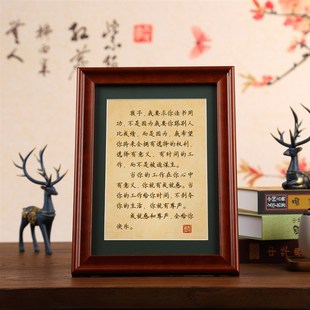 孩子，我要求你读书用
功，不是因为我要你跟别人
比成绩，而是因为，我希望
你将来会拥有选择的权利，
选择有意义、有时间的工
作，而不是被迫谋生。
当你的工作在你心中
有意义，你就有成就感。当
你的工作给你时间，不剥夺
你的生活，你就有尊严。
成就感和尊严，会给你
快乐。